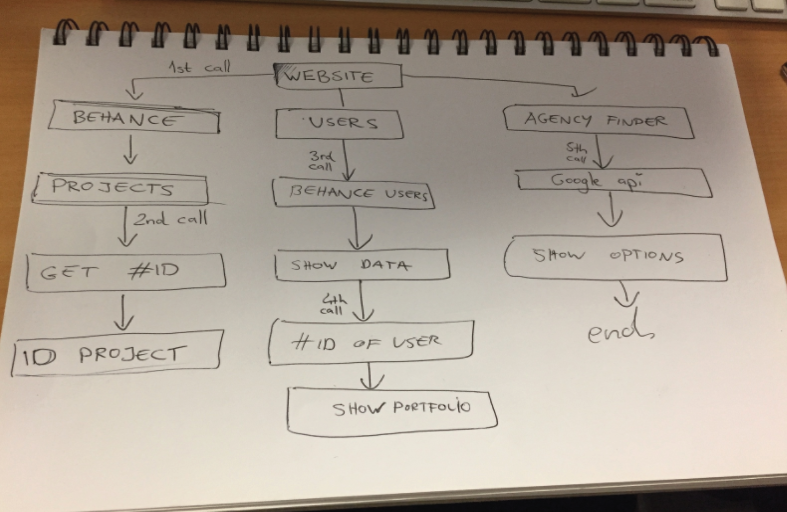 1st call
WEBSITE
BEHANCE
PROJECTS
2nd call
GET #ID
ID PROJECT
USERS
3rd
call
BEHANCE USERS
SHOW DATA
4th
call
#ID OF USER
SHOW PORTFOLIO
AGENCY FINDER
5th
call
Google api
SHOW OPTIONS
end